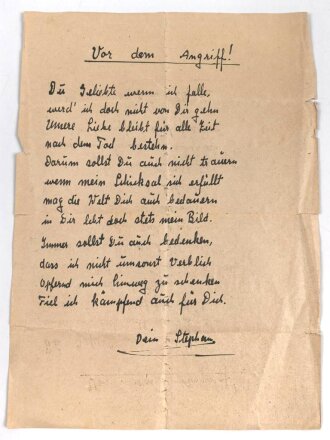 Vor dem Angriff!
Du Geliebte wenn ich falle,
werd' ich doch nicht von Dir gehn
Unsere Liebe bleibt für alle Zeit
nach dem Tod bestehn.
Darum sollst Du auch nicht trauern
wenn mein Schicksal sich erfüllt
mag die Welt Dich auch bedauern
in Dir lebt doch stets mein Bild.
Immer sollst Du auch bedenken,
dass ich nicht umsonst verblich
Opfernd mich hinweg zu schenken
Fiel ich kämpfend auch für Dich.
Dein Stephan